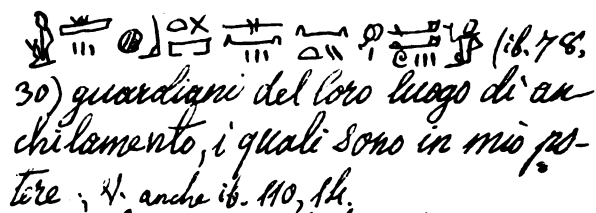 (ib. 78,
30) guardiani del loro luogo di an-
chilamento, i quali sono in mio po-
tere; V. anche ib. 110, 14.